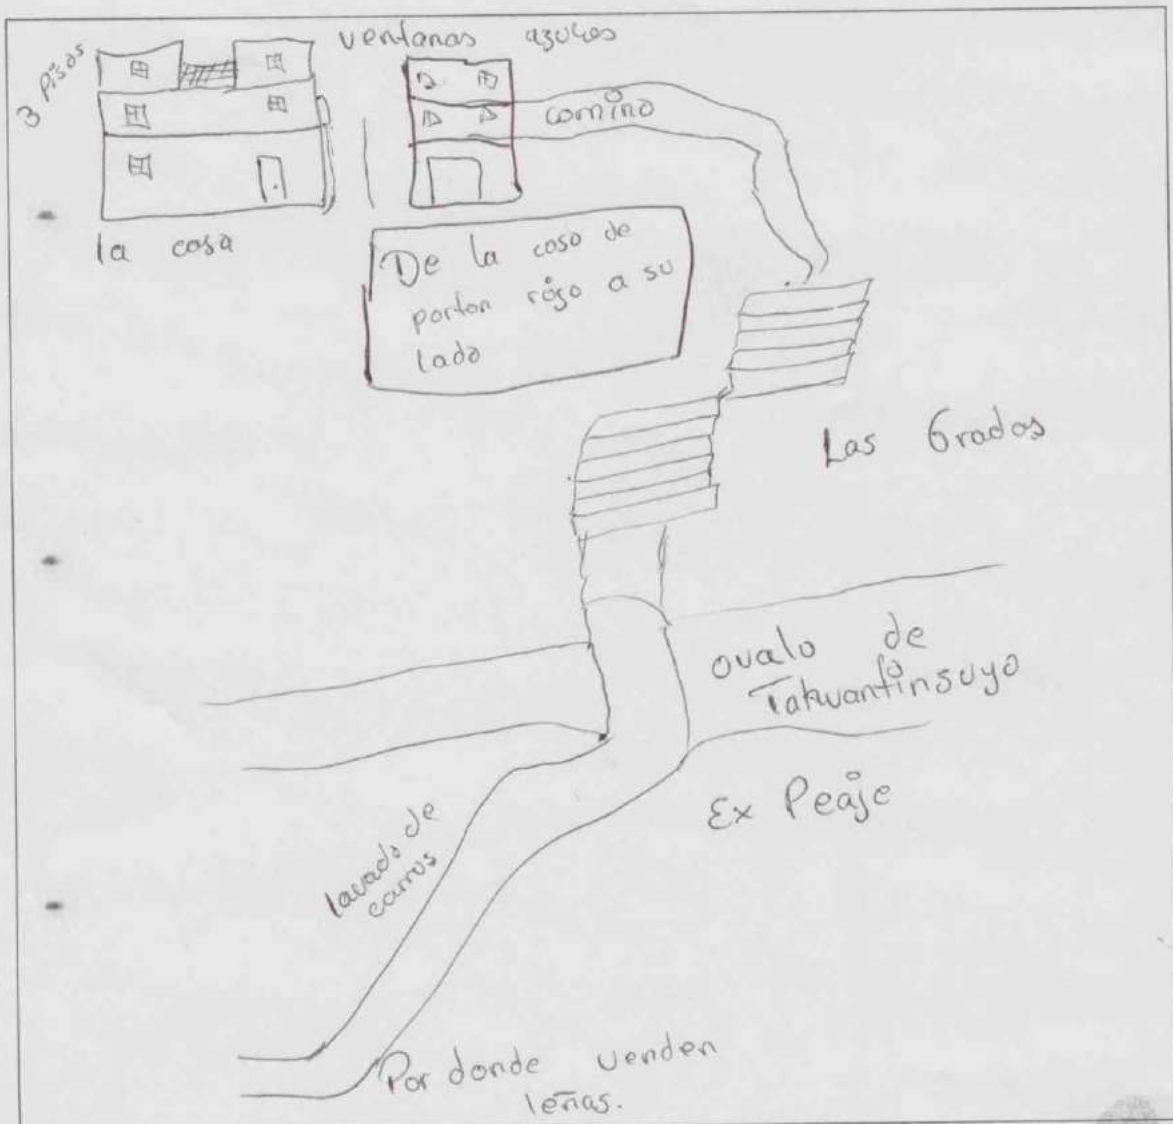 3 Pisos
ventanas azules
camino
la casa
De la casa de
porton rojo a su
lado
Las Gradas
ovalo de
Tahuantinsuyo
Ex Peaje
lavado de
carros
Por donde venden
leñas.